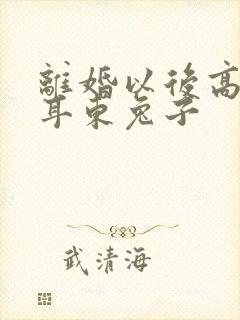 離婚以後高
耳東兔子
武清海